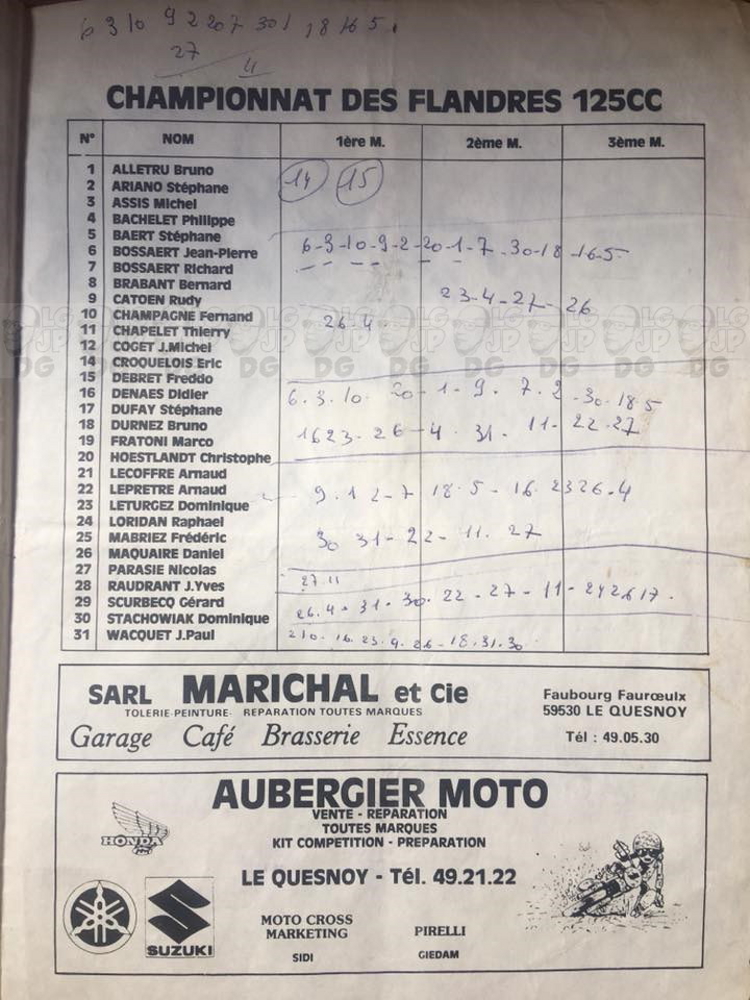 6 3 10 9 2 20 7 30 1 18 16 5.
27
4
CHAMPIONNAT DES FLANDRES 125CC
N° NOM 1ère M. 2ème M. 3ème M.
1 ALLETRU Bruno
2 ARIANO Stéphane 14 15
3 ASSIS Michel
4 BACHELET Philippe
5 BAERT Stéphane
6 BOSSAERT Jean-Pierre 6-3-10-9-2-20-1-7-30-18-16-5
7 BOSSAERT Richard
8 BRABANT Bernard
9 CATOEN Rudy 23-4-27-26
10 CHAMPAGNE Fernand
11 CHAPELET Thierry 26-4
12 COGET J.Michel
14 CROQUELOIS Eric
15 DEBRET Freddo
16 DENAES Didier 6.3.10.20-1-9.7.2-30.18 5
17 DUFAY Stéphane
18 DURNEZ Bruno 16 23-26-4.31-11-22-27
19 FRATONI Marco
20 HOESTLANDT Christophe
21 LECOFFRE Arnaud
22 LEPRETRE Arnaud 9.1 2-7 18.5-16.23 26.4
23 LETURGEZ Dominique
24 LORIDAN Raphael
25 MABRIEZ Frédéric 30 31-22-11.27
26 MAQUAIRE Daniel
27 PARASIE Nicolas
28 RAUDRANT J.Yves 27 11
29 SCURBECQ Gérard 26.4.31.30.22-27-11-
30 STACHOWIAK Dominique
31 WACQUET J.Paul 2 10.16.23.9.26-18.31.30
SARL MARICHAL et Cie
TOLERIE-PEINTURE- REPARATION TOUTES MARQUES
Garage Café Brasserie Essence
Faubourg Faurœulx
59530 LE QUESNOY
Tél : 49.05.30
AUBERGIER MOTO
VENTE - REPARATION
TOUTES MARQUES
KIT COMPETITION - PREPARATION
HONDA
LE QUESNOY - Tél. 49.21.22
SUZUKI
MOTO CROSS
MARKETING
SIDI
PIRELLI
GIEDAM
LG
JP
DG